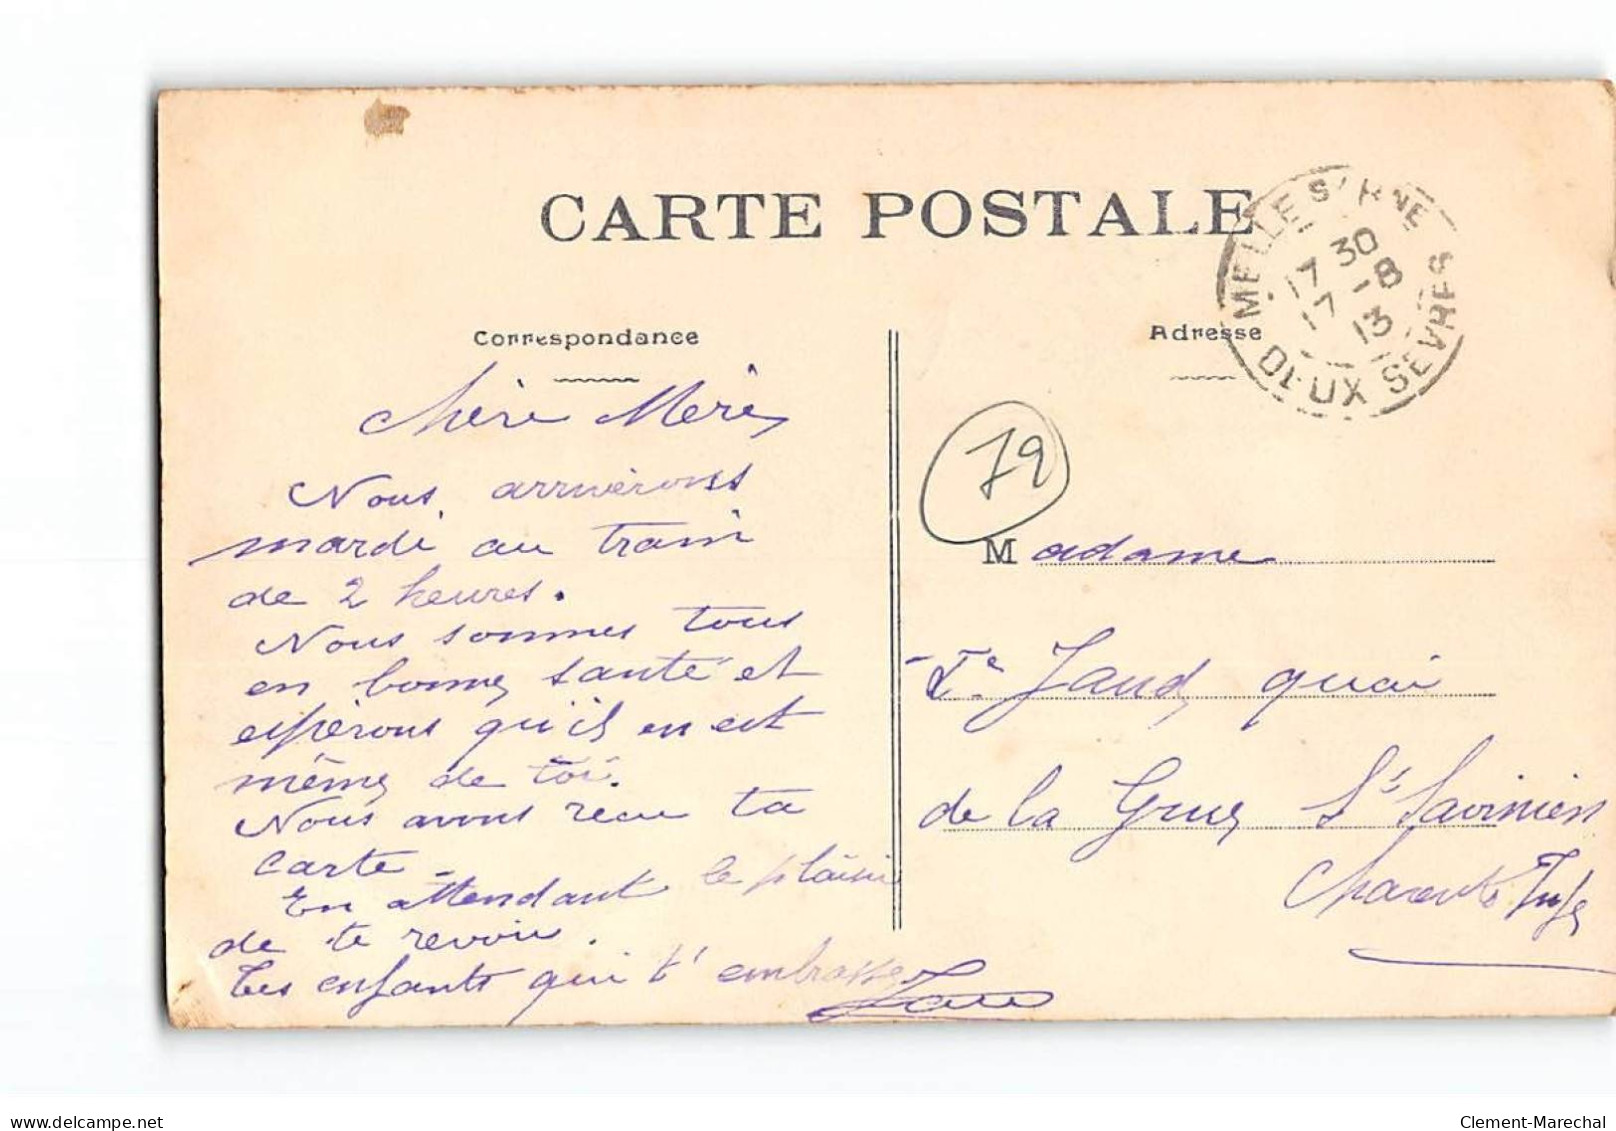 CARTE POSTALE
MELLE S/BNE
17 30
17 -8
13
DEUX SEVRES
Correspondance
Adresse
Chère Mère
Nous arriverons
mardi au train
de 2 heures.
Nous sommes tous
en bonne santé et
espérons qu'il en est
même de toi.
Nous avons reçu ta
carte -
En attendant le plaisir
de te revoir.
Tes enfants qui t'embrasse
79
Madame
Jaud quai
de la Grue St Savinien
Charente Infre
delcampe.net
Clement-Marechal